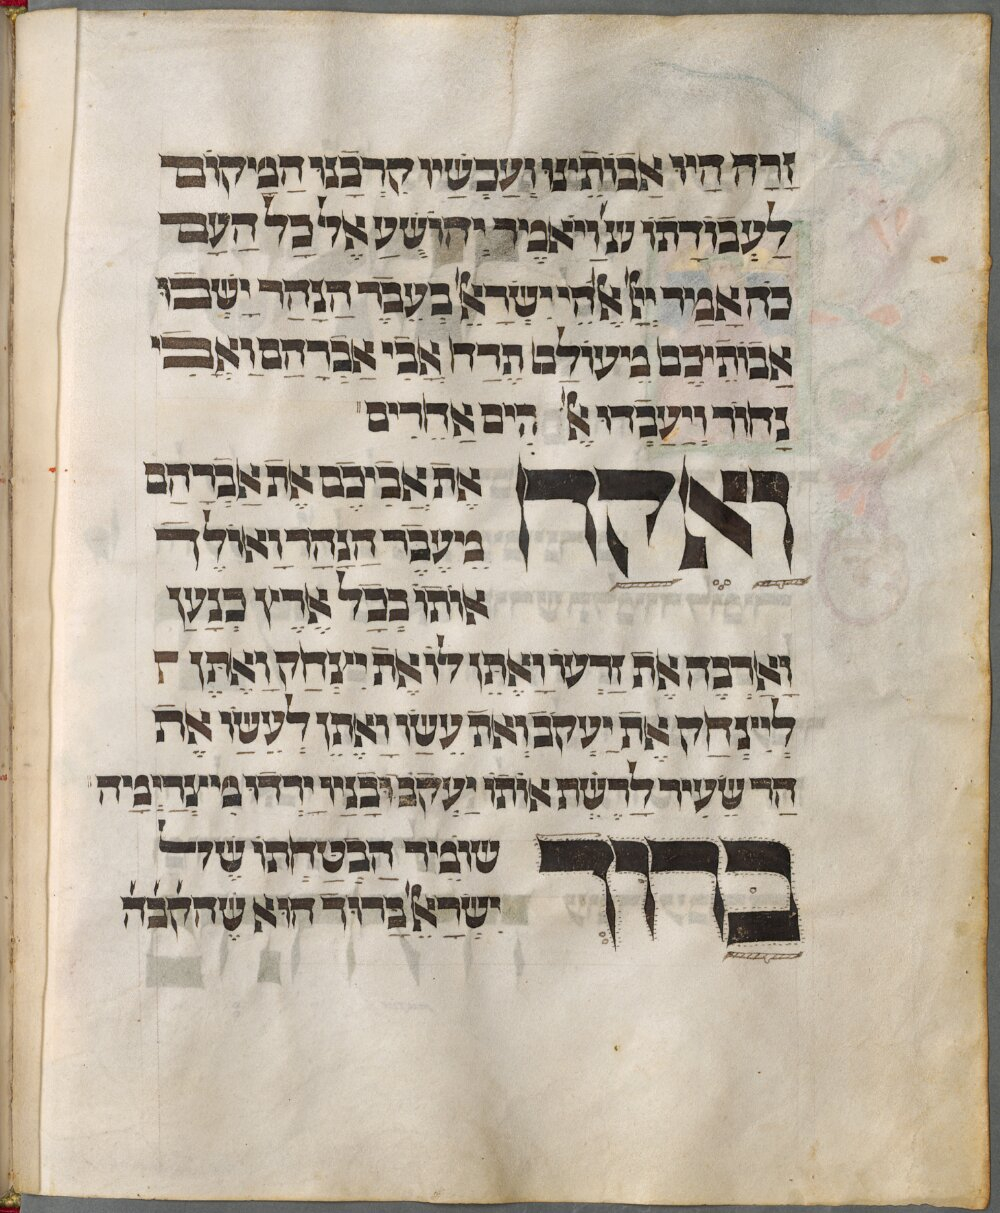 זָרָה הָיוּ אֲבוֹתֵינוּ וְעַכְשָׁיו קֵרְבָנוּ הַמָּקוֹם
לַעֲבוֹדָתוֹ שנ וַיֹאמֶר יְהוֹשֻׁעַ אֶל כָּל הָעָם
כֹּה אָמַר יְיָ אֱלֹהֵי יִשְׂרָאֵל בְּעֵבֶר הַנָהָר יָשְׁבוּ
אֲבוֹתֵיכֶם מֵעוֹלָם תֶּרַח אֲבִי אַבְרָהָם וַאֲבִי
נָחוֹר וַיַעַבְדוּ אֱלֹהִים אֲחֵרִים
וָאֶקַּח אֶת אֲבִיכֶם אֶת אַבְרָהָם
מֵעֵבֶר הַנָהָר וָאוֹלֵךְ
אוֹתוֹ בְּכָל אֶרֶץ כְּנָעַן
וָאַרְבֶּה אֶת זַרְעוֹ וָאֶתֵּן לוֹ אֶת יִצְחָק וָאֶתֵּן
לְיִצְחָק אֶת יַעֲקֹב וְאֶת עֵשָׂו וָאֶתֵּן לְעֵשָׂו אֶת
הַר שֵׂעִיר לָרֶשֶׁת אוֹתוֹ וְיַעֲקֹב וּבָנָיו יָרְדוּ מִצְרָיְמָה
בָּרוּךְ שׁוֹמֵר הַבְטָחָתוֹ שֶׁל
יִשְׂרָאֵל בָּרוּךְ הוּא שֶׁהַקָּבָּ״ה